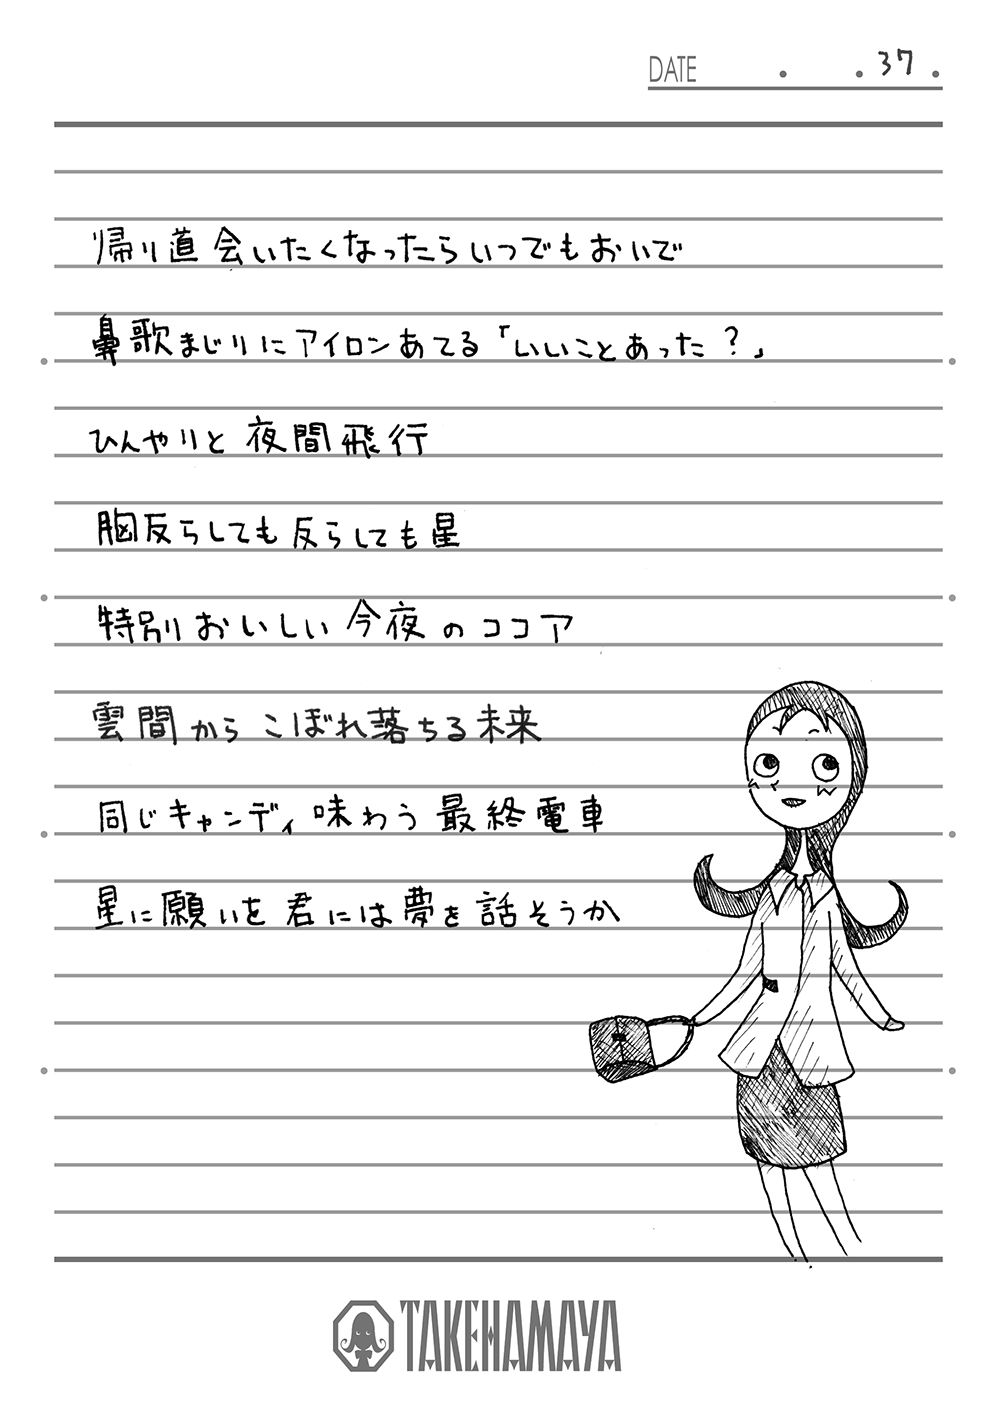 DATE . . 37 .
帰り道 会いたくなったらいつでもおいで
鼻歌まじりにアイロンあてる「いいことあった？」
ひんやりと 夜間飛行
胸反らしても 反らしても 星
特別 おいしい 今夜 の ココア
雲間 から こぼれ落ちる 未来
同じ キャンディ 味わう 最終電車
星に 願いを 君には 夢を 話そうか
TAKEHAMAYA